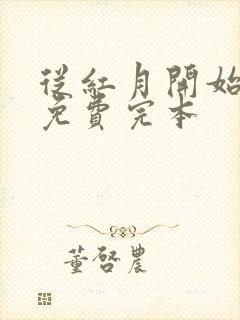 從紅月開始
免費完本
董啓農